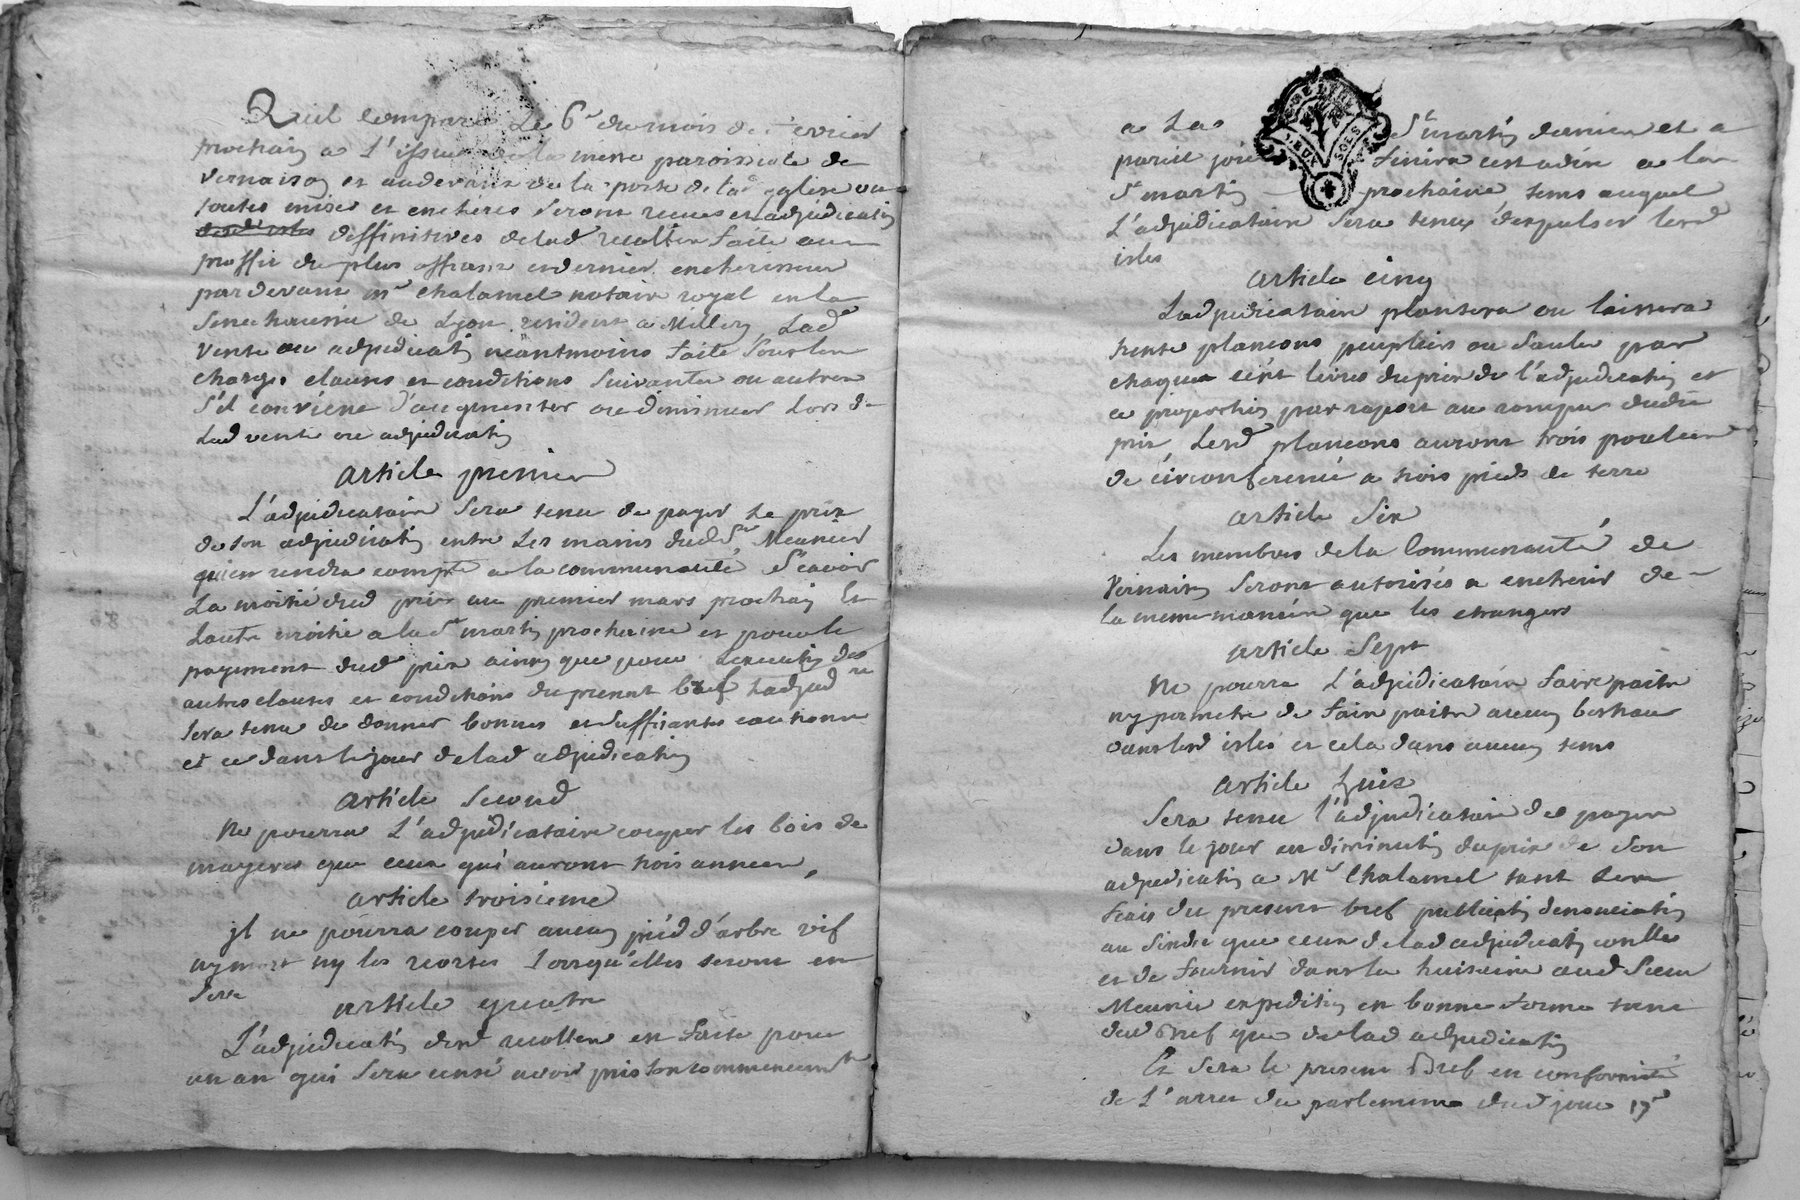 Quil compare le 6e du mois de fevrier
prochain a l'issue de la messe paroissiale de
vernaison et audevant de la porte de lad eglise ou
toutes mises et encheres seront recues et adjudication
deffinitives delad recolten faite au
proffit du plus offrant et dernier encherisseur
pardevant mr chalamel notaire royal en la
senechaussee de Lyon resident a Millery, Lade
vente ou adjudication neantmoins faite sous les
charges clauses et conditions suivantes ou autres
s'il convient d'augmenter ou diminuer lors de
Lad vente ou adjudication
article premier
L'adjudicataire sera tenu de payer le prix
de son adjudication entre les mains dud Sr Meunier
qui en rendra compte a la communauté Scavoir
La moitié dud prix au premier mars prochain Et
Lautre moitié a la St martin prochaine et pour le
payement dud prix ainsy que pour Lexecution des
autres clauses et conditions du present bref Ladjudre
sera tenu de donner bonnes et suffisantes cautions
et ce dans le jour de lad adjudication
article second
Ne pourra L'adjudicataire couper les bois de
que ceux qui auront trois années,
article troisieme
jl ne pourra couper aucun pied d'arbre vif
ny mort ny les lorsqu'elles seront en
seve
article quatre
L'adjudication desd recolten est faite pour
un an qui sera censé avoir pris son commencemte
a La St martin dernier et a
pareil jour finira cest adire a la
St martin prochaine tems auquel
L'adjudicataire sera tenu lesd
isles
article cinq
Ladjudicataire plantera ou laissera
trente plancons peupliers ou saules par
chaque cent livres du prix de l'adjudication et
a proportion par raport au rompu dudit
prix Lesd plancons auront trois pouces
de circonference a trois pieds de terre
article Six
Les membres de la Communauté de
Vernaison seront autorisés a encherir de
la meme maniere que les etrangers
article Sept
Ne pourra L'adjudicataire faire paitre
ny permetre de faire paitre aucun bestiau
dans lesd isles et cela dans aucun tems
article huit
Sera tenu l'adjudicataire de payer
dans le jour en diminution du prix de son
adjudication a Mr Chalamel tant les
frais du present bref publication denonciation
au sindic que ceux de lad adjudication
et de fournir dans la huitaine aud Sieur
Meunier expedition en bonne forme tant
dud Bref que de lad adjudication
Et sera le present Bref en conformité
de L'arret du parlement dud jour 19e
DEUX SOLS